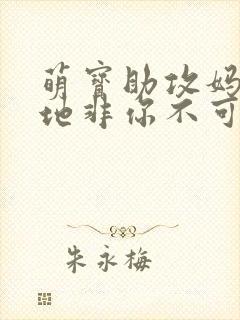 萌寶助攻妈
地非你不可
朱永梅